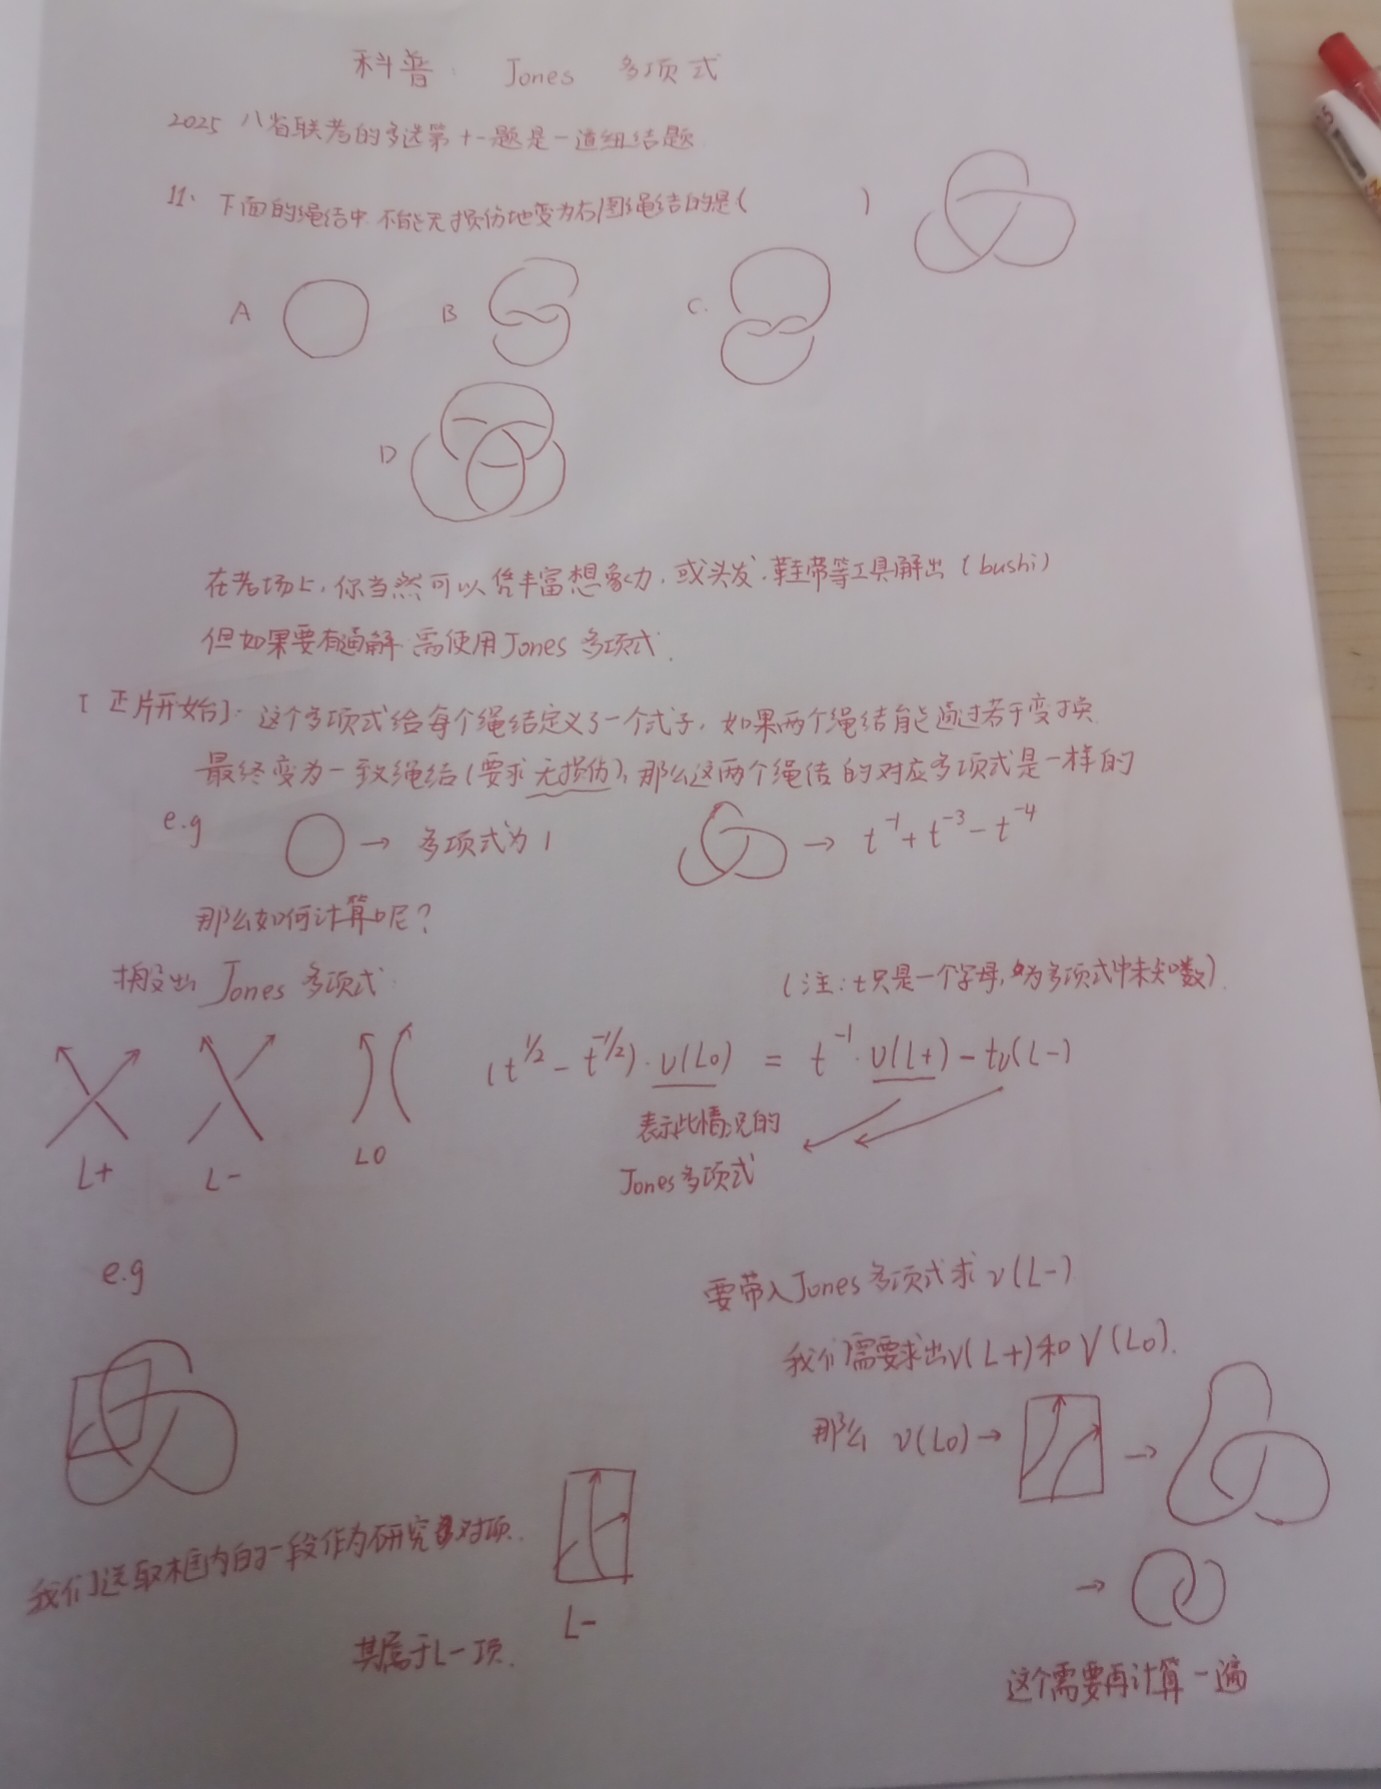 科普: Jones 多项式
2025 八省联考的多选第十一题是一道纽结题
11. 下面的绳结中 不能无损伤地变为右图绳结的是( )
A B C.
D
在考场上,你当然可以凭丰富想象力.或头发.鞋带等工具解出(bushi)
但如果要有通解 需使用Jones 多项式.
[正片开始]. 这个多项式给每个绳结定义了一个式子,如果两个绳结能通过若干变换
最终变为一致绳结(要求无损伤),那么这两个绳结的对应多项式是一样的
e.g → 多项式为 1 → t⁻¹+t⁻³-t⁻⁴
那么如何计算呢?
搬出 Jones 多项式: (注:t只是一个字母,为多项式中未知数).
(t^1/2 - t^-1/2)·v(L0) = t⁻¹·v(L+) - tv(L-)
L+ L- L0
表示此情况的
Jones多项式
e.g
要带入Jones多项式求 v(L-)
我们需要求出v(L+)和V(L0).
那么 v(L0)→ →
我们选取框内的一段作为研究对项.
L-
其属于L-项.
→
这个需要再计算一遍